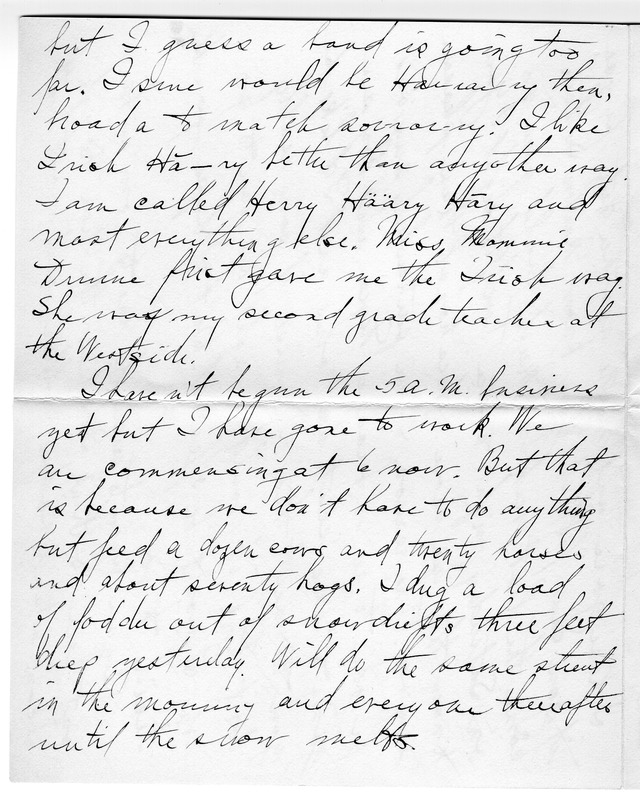 but I guess a band is going too
far. I sure would be Har-rar-ry then,
hoada to match sorror-ry. I like
Irish Hā-ry better than any other way.
I am called Herry Häāry Hāry and
most everything else. Miss Mommie
Drunne first gave me the Irish way.
She was my second grade teacher at
the Westside.
I haven't begun the 5 a.m. business
yet but I have gone to work. We
are commensing at 6 now. But that
is because we don't have to do anything
but feed a dozen cows and twenty horses
and about seventy hogs. I dug a load
of fodder out of snowdrifts three feet
deep yesterday. Will do the same stunt
in the morning and every one thereafter
until the snow melts.